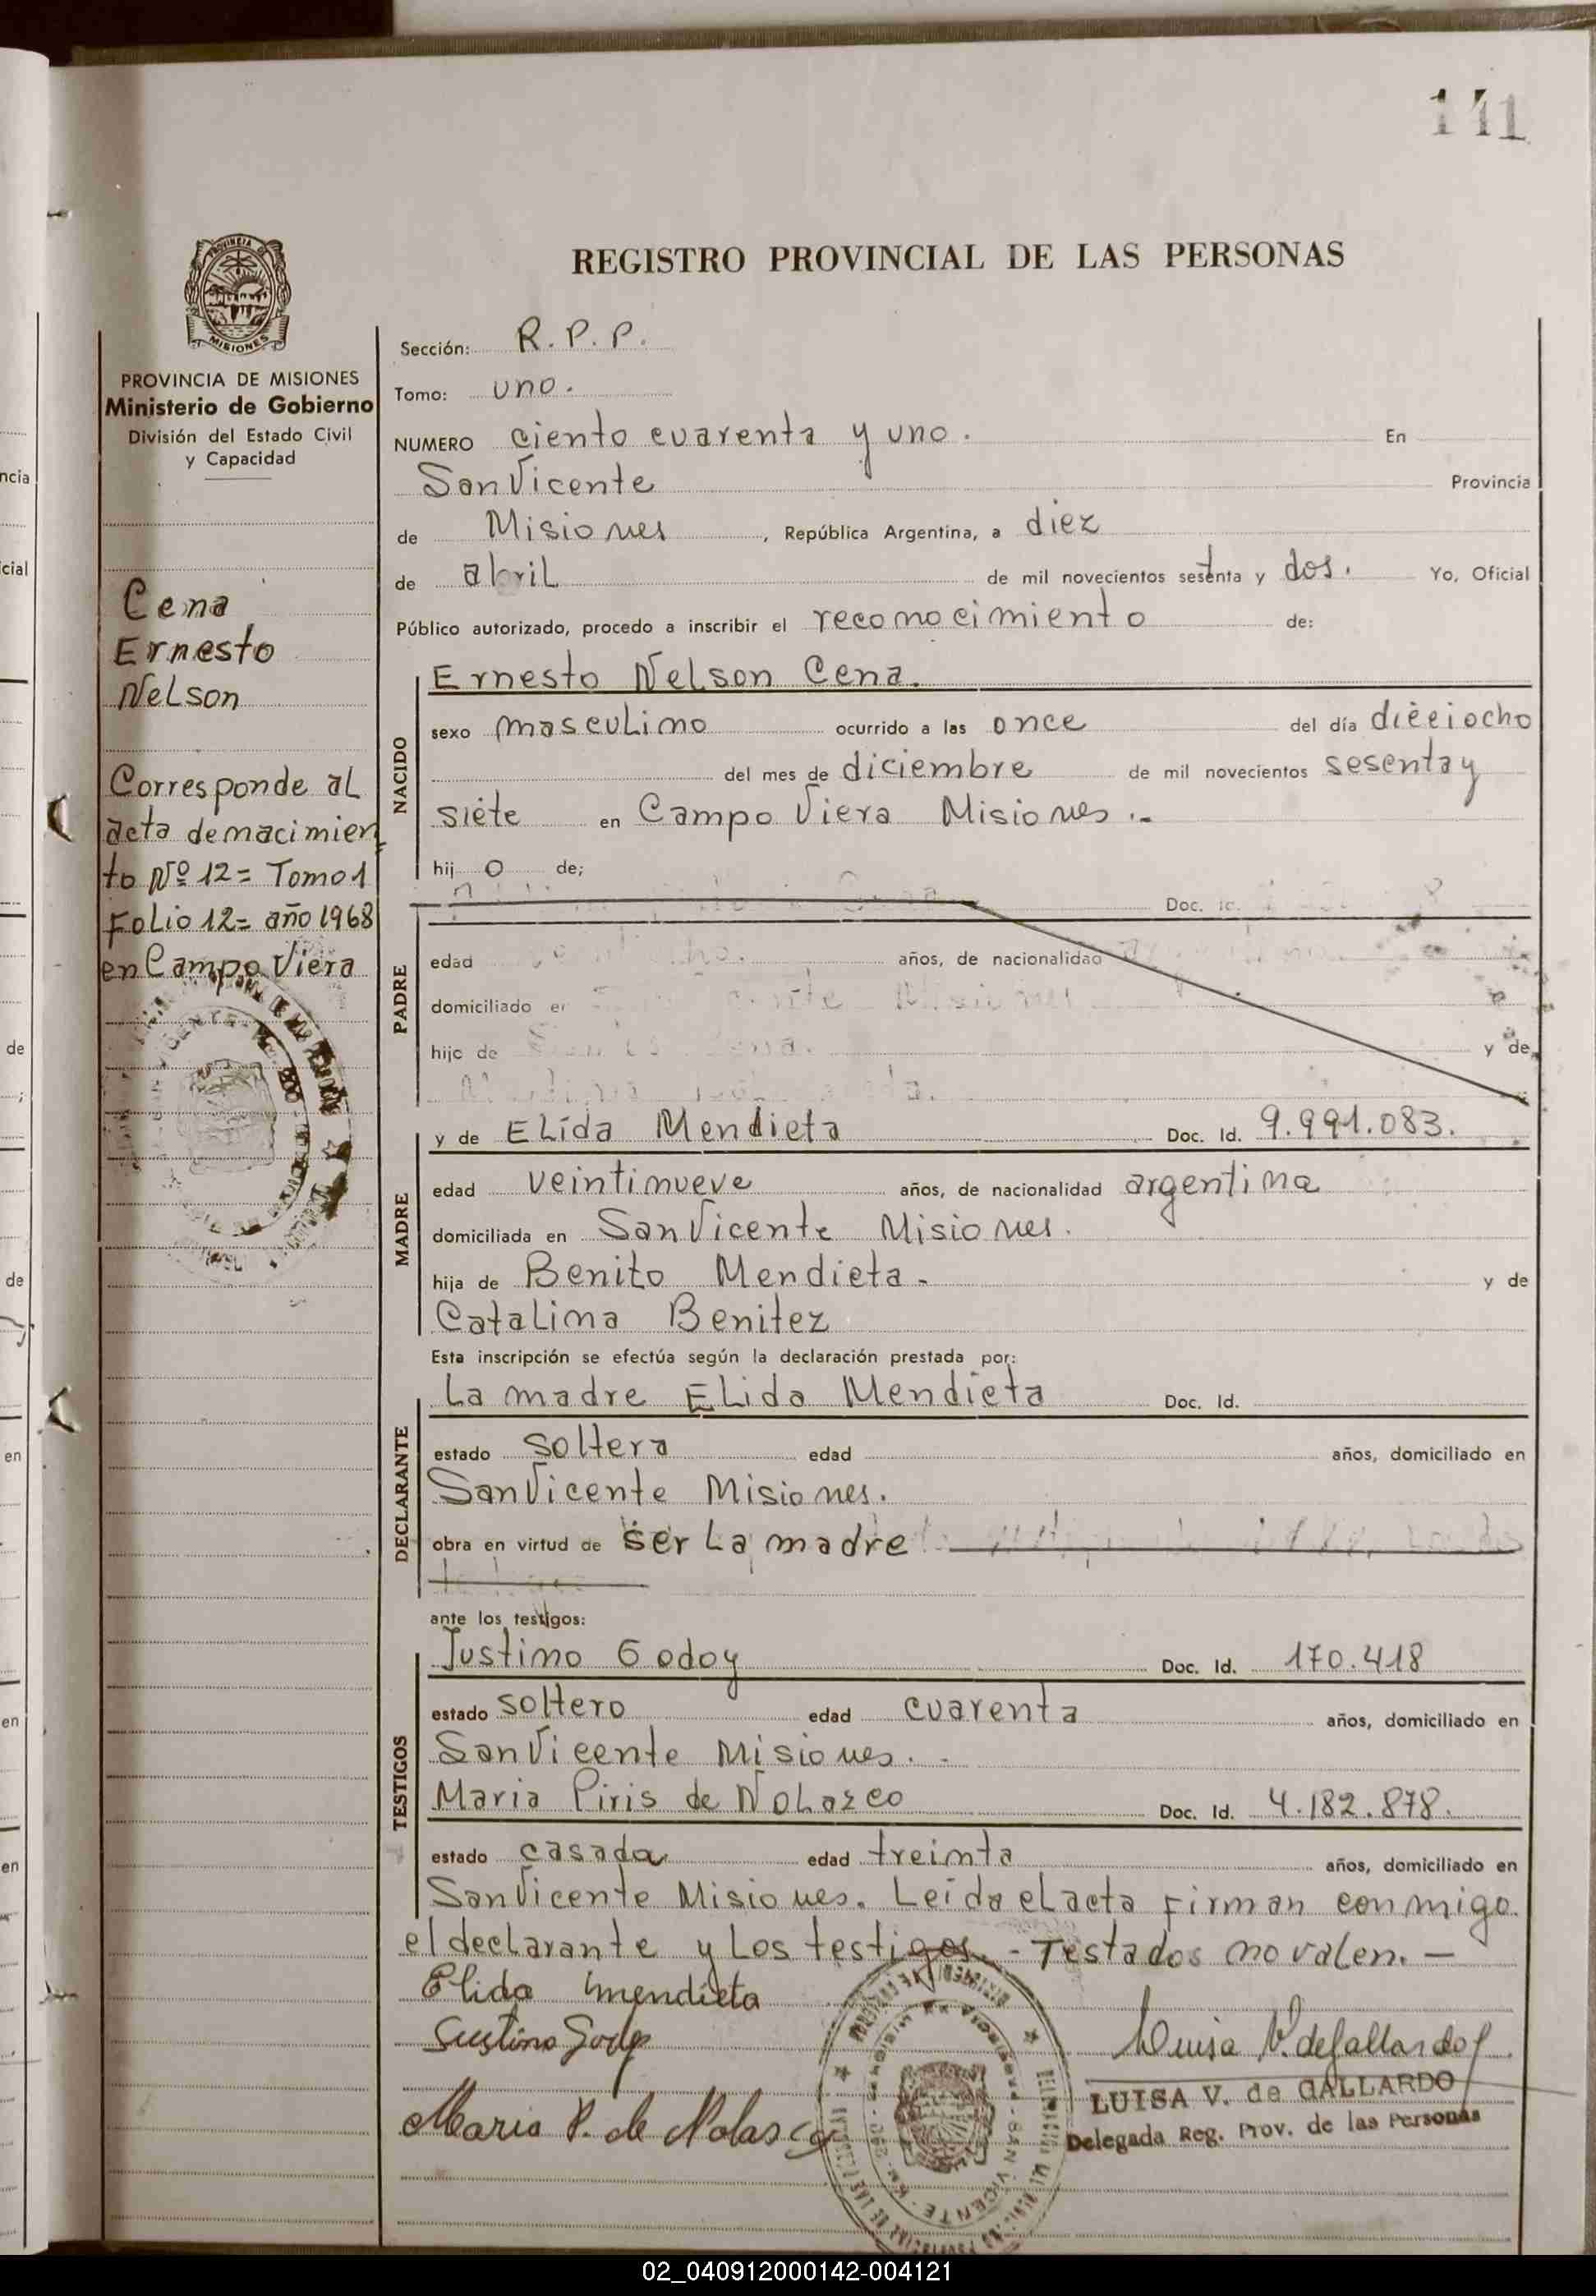 141
REGISTRO PROVINCIAL DE LAS PERSONAS
PROVINCIA DE MISIONES
Ministerio de Gobierno
División del Estado Civil
y Capacidad
Cena
Ernesto
Nelson
Corresponde al
acta de nacimien
to Nº 12= Tomo 1
Folio 12= año 1968
en Campo Viera
Sección: R. P. P.
Tomo: uno.
NUMERO ciento cuarenta y uno. En
San Vicente Provincia
de Misiones, República Argentina, a diez
de abril de mil novecientos setenta y dos. Yo, Oficial
Público autorizado, procedo a inscribir el reconocimiento de:
NACIDO
Ernesto Nelson Cena.
sexo masculino ocurrido a las once del día dieciocho
del mes de diciembre de mil novecientos sesenta y
siete en Campo Viera Misiones.-
hij o de;
PADRE
Doc. Id.
edad años, de nacionalidad
domiciliado en
hijo de y de
MADRE
y de Elída Mendieta Doc. Id. 9.991.083.
edad veintinueve años, de nacionalidad argentina
domiciliada en San Vicente Misiones.
hija de Benito Mendieta - y de
Catalina Benitez
Esta inscripción se efectúa según la declaración prestada por:
DECLARANTE
La madre Elida Mendieta Doc. Id.
estado soltera edad años, domiciliado en
San Vicente Misiones.
obra en virtud de ser La madre
ante los testigos:
TESTIGOS
Justino Godoy Doc. Id. 170.418
estado soltero edad cuarenta años, domiciliado en
San Vicente Misiones. -
Maria Piris de Nolazco Doc. Id. 4.182.878.
estado casada edad treinta años, domiciliado en
San Vicente Misiones. Leída el acta firman conmigo
el declarante y Los testigos. - Testados no valen. —
Elida Mendieta
Justino Godoy
Maria P. de Nolasco
Luisa V. de Gallardo
LUISA V. de GALLARDO
Delegada Reg. Prov. de las Personas
02_040912000142-004121